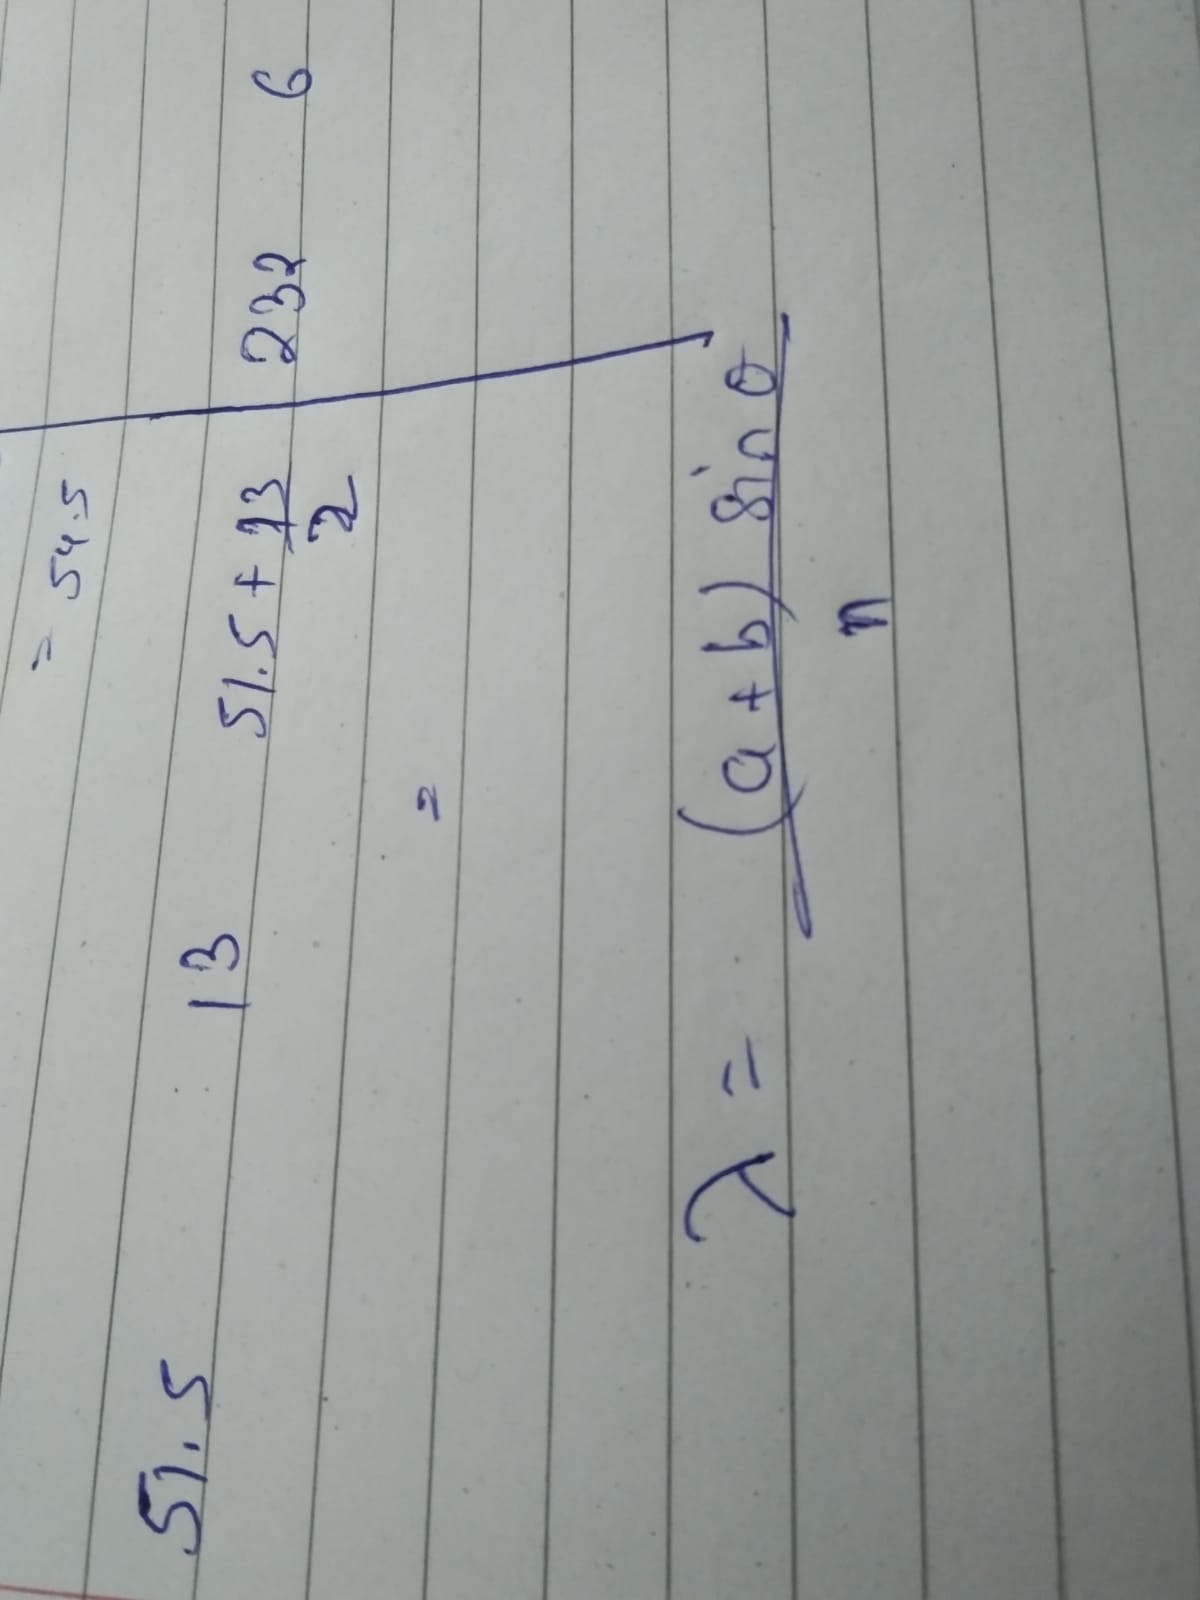 = 54.5
51.5 13 51.5 + 13/2 232 6
=
λ = (a + b) sin θ
n